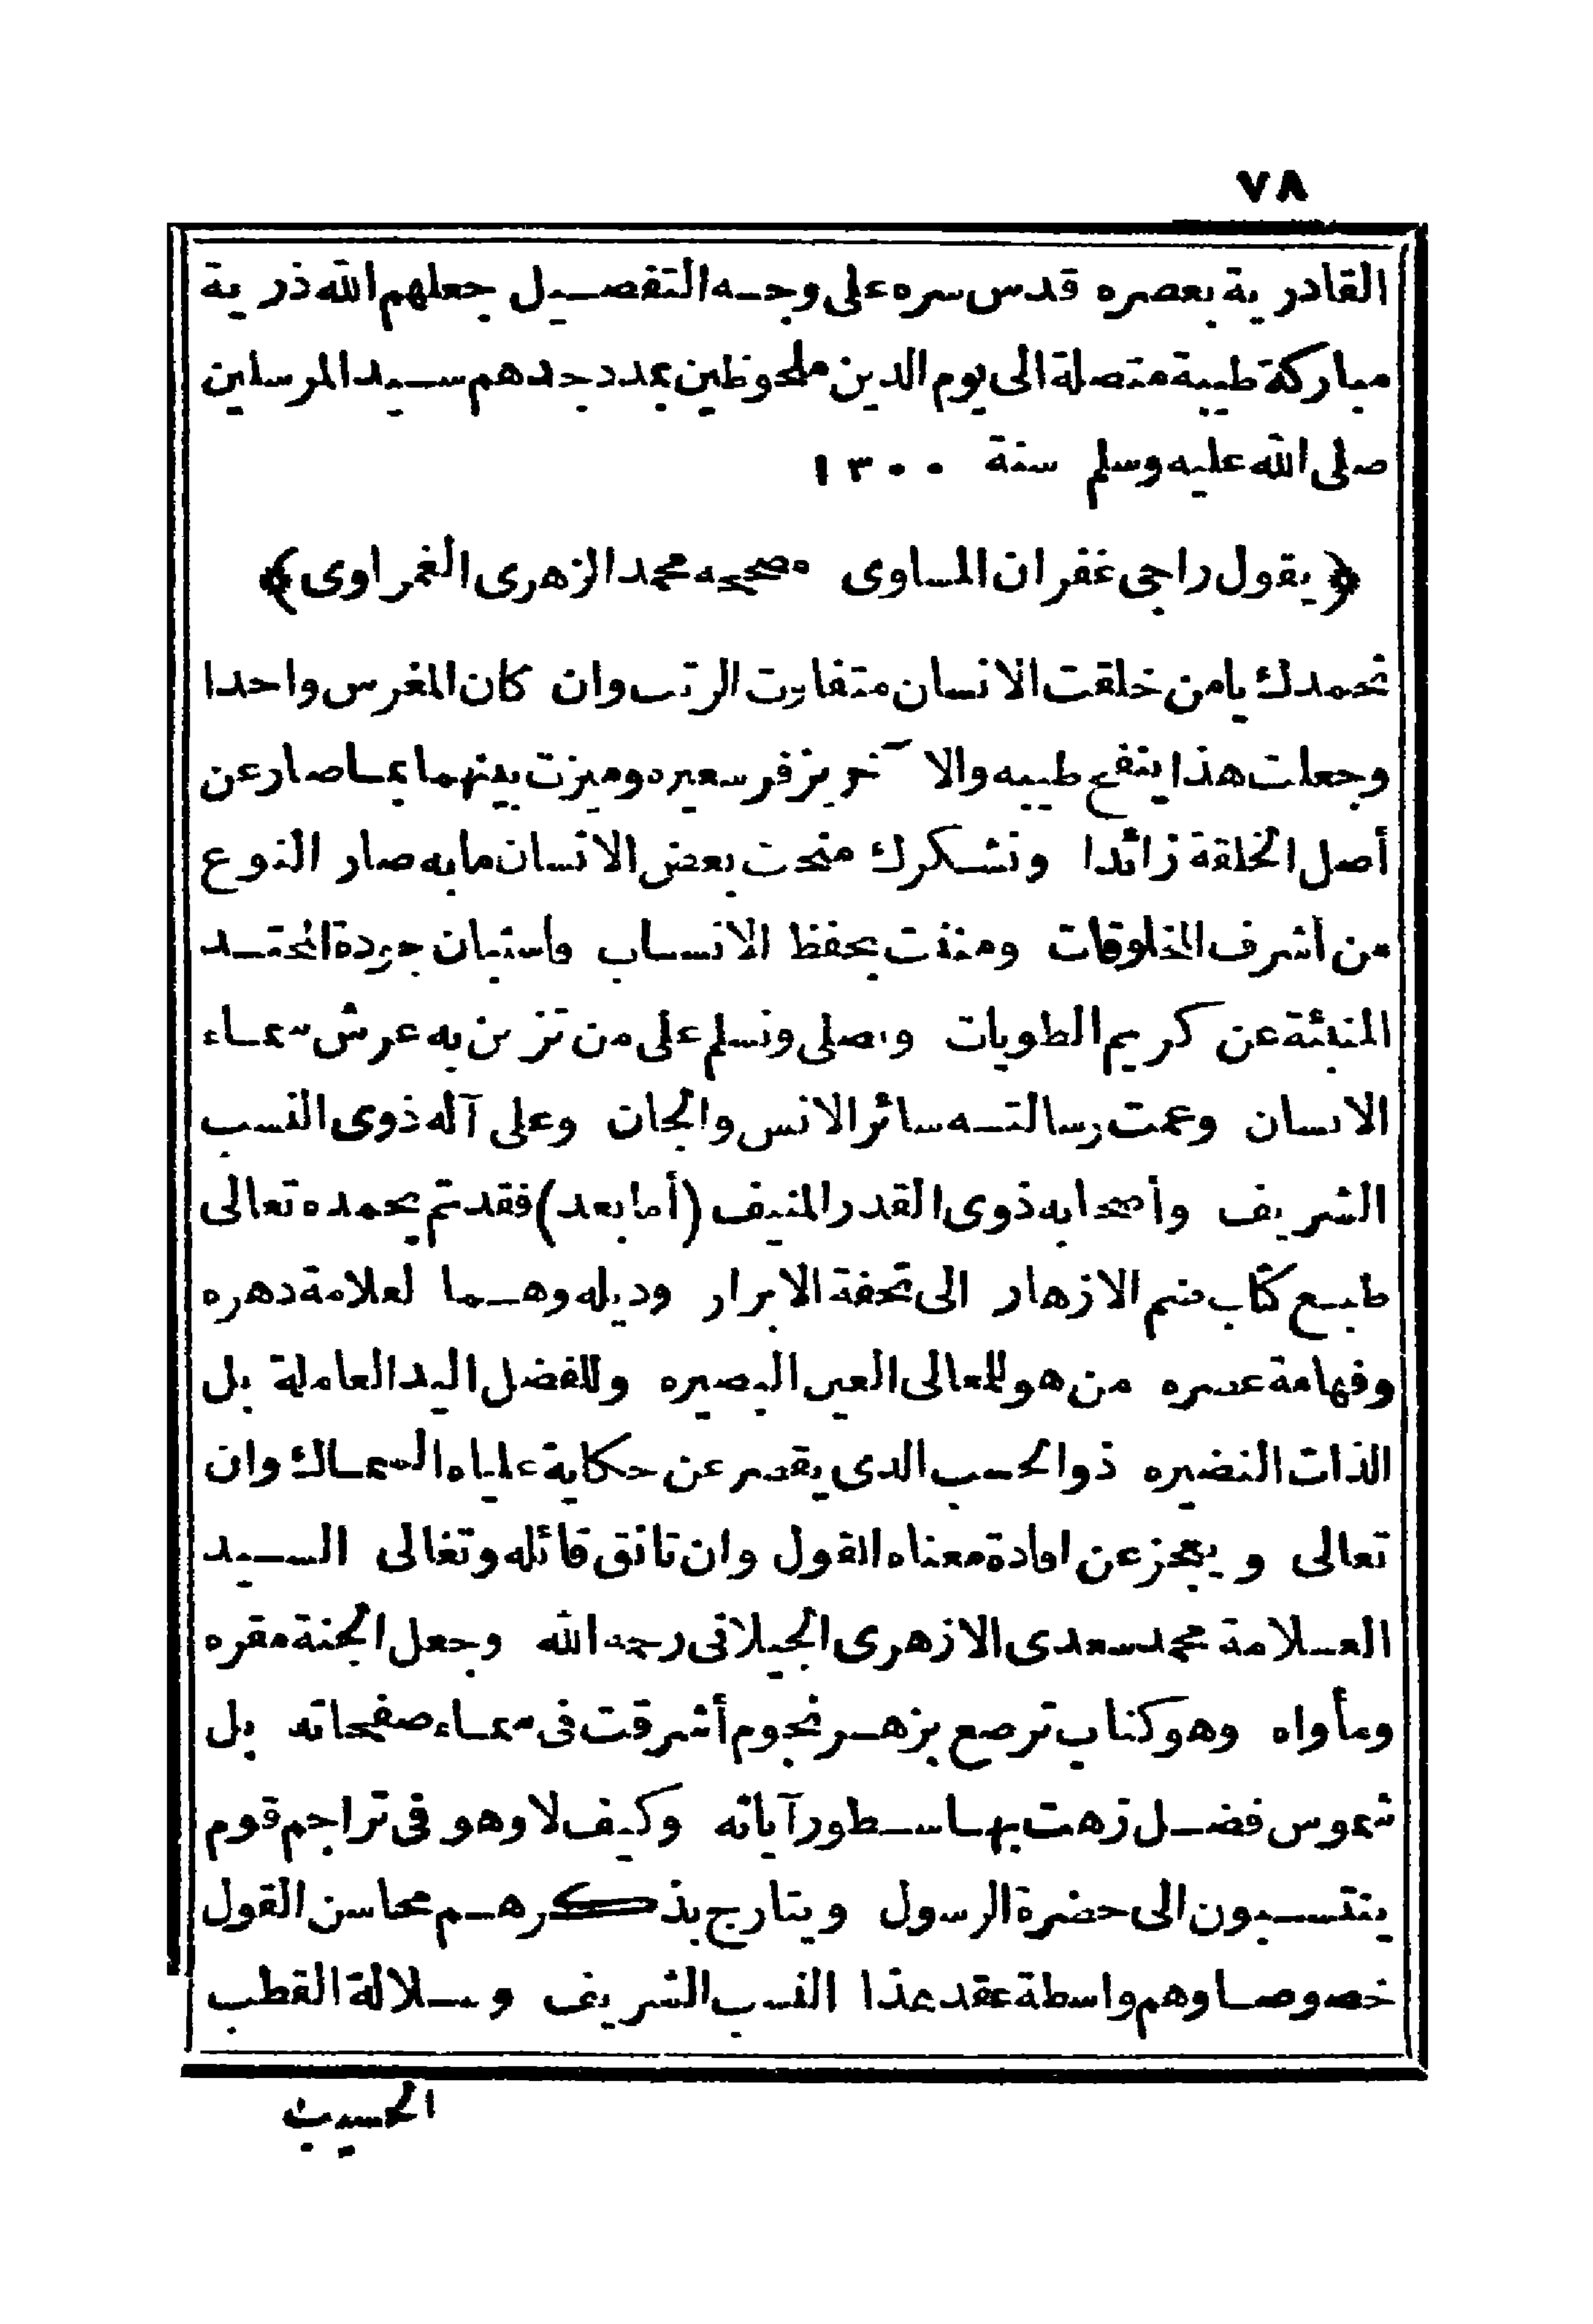 ٧٨
القادرية بعصره قدس سره على وجه التفصيل جعلهم الله ذرية
مباركة طيبة متصلة الى يوم الدين ملحوظين بمدد جدهم سيد المرسلين
صلى الله عليه وسلم سنة ١٣٠٠
﴿يقول راجى غفران المساوى مصححه محمد الزهرى الغمراوى﴾
نحمدك يامن خلقت الانسان متفاوت الرتب وان كان المغرس واحدا
وجعلت هذا ينفح طيبه والآخر يزفر سعيره وميزت بينهما بما صار عن
أصل الخلقة زائدا ونشكرك منحت بعض الانسان ما به صار النوع
من أشرف المخلوقات ومننت بحفظ الانساب فاستبان جودة المحتد
المنبئة عن كريم الطويات ونصلى ونسلم على من تزين به عرش سماء
الانسان وعمت رسالته سائر الانس والجان وعلى آله ذوى النسب
الشريف وأصحابه ذوى القدر المنيف (أما بعد) فقد تم بحمده تعالى
طبع كتاب ضم الازهار الى تحفة الابرار وذيله وهما لعلامة دهره
وفهامة عصره من هو للمعالى العين البصيره وللفضل اليد العاملة بل
الذات النضيره ذو الحسب الذى يقصر عن حكاية علياه السماك وان
تعالى ويعجز عن افادة معناه القول وان تانق قائله وتغالى السيد
العلامة محمد سعدى الازهرى الجيلانى رحمه الله وجعل الجنة مقره
ومأواه وهو كتاب ترصع بزهر نجوم أشرقت فى سماء صفحاته بل
شموس فضل زهت بها سطور آياته وكيف لا وهو فى تراجم قوم
ينتسبون الى حضرة الرسول ويتارج بذكرهم محاسن القول
خصوصا وهم واسطة عقد هذا النسب الشريف وسلالة القطب
الحسيب